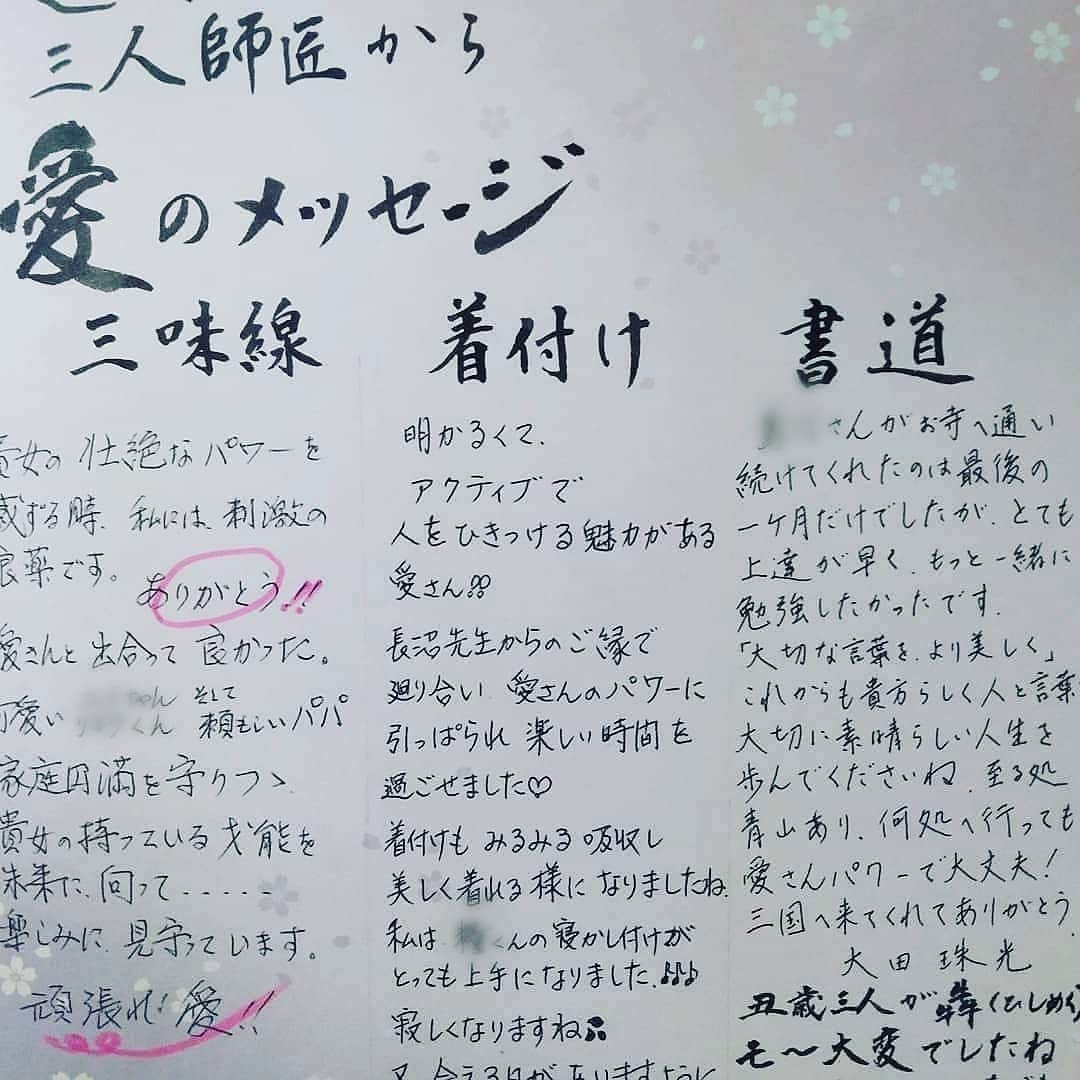 三人師匠から
愛のメッセージ
三味線
貴女の 壮絶なパワーを
感ずる時、私には、刺激の
良薬です。
ありがとう!!
愛さんと出合って 良かった。
可愛い
くん そして
頼もしいパパ
家庭円満を守りつゝ、
貴女の持っている才能を
未来に、向って......
楽しみに、見守っています。
頑張れ!愛!!
着付け
明かるくて、
アクティブで
人をひきつける魅力がある
愛さん!!
長沼先生からのご縁で
廻り合い、愛さんのパワーに
引っぱられ 楽しい時間を
過ごせました♡
着付けも みるみる 吸収し
美しく着れる様に なりましたね。
私は くんの寝かし付けが
とっても上手になりました♪♪♪
寂しくなりますね
又 会える日が ありますように
書道
さんがお寺へ通い
続けてくれたのは最後の
一ケ月だけでしたが、とても
上達が早く、もっと一緒に
勉強したかったです。
「大切な言葉を、より美しく」
これからも貴方らしく人と言葉
大切に素晴らしい人生を
歩んでくださいね。至る処
青山あり、何処へ行っても
愛さんパワーで大丈夫!
三国へ来てくれてありがとう
大田 珠光
丑歳三人が犇(ひしめく)
モ〜大変でしたね